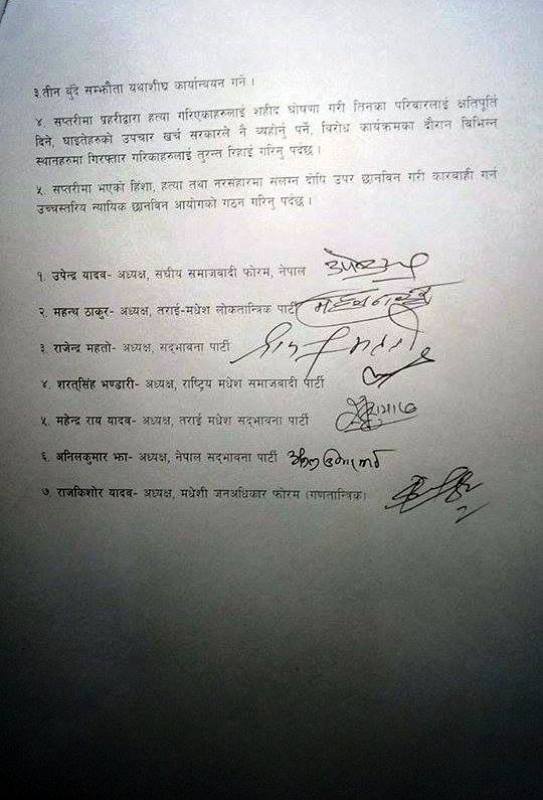 ३.तीन बुँदे सम्झौता यथाशीघ्र कार्यान्वयन गर्ने ।
४. सप्तरीमा प्रहरीद्वारा हत्या गरिएकाहरुलाई शहीद घोषणा गरी तिनका परिवारलाई क्षतिपूर्ति
दिने, घाइतेहरुको उपचार खर्च सरकारले नै व्यहोर्नु पर्ने, विरोध कार्यक्रमका दौरान विभिन्न
स्थानहरुमा गिरफ्तार गरिकाहरुलाई तुरन्त रिहाई गरिनु पर्दछ ।
५. सप्तरीमा भएको हिंशा, हत्या तथा नरसंहारमा सलग्न दोषि उपर छानविन गरी कारवाही गर्न
उच्चस्तरिय न्यायिक छानविन आयोगको गठन गरिनु पर्दछ ।
१. उपेन्द्र यादव- अध्यक्ष, संघीय समाजवादी फोरम, नेपाल
२. महन्थ ठाकुर- अध्यक्ष, तराई-मधेश लोकतान्त्रिक पार्टी
३. राजेन्द्र महतो- अध्यक्ष, सद्‌भावना पार्टी
४. शरत्‌सिंह भण्डारी- अध्यक्ष, राष्ट्रिय मधेश समाजवादी पार्टी
५. महेन्द्र राय यादव- अध्यक्ष, तराई मधेश सद्‌भावना पार्टी
६. अनिलकुमार झा- अध्यक्ष, नेपाल सद्‌भावना पार्टी
७. राजकिशोर यादव- अध्यक्ष, मधेशी जनअधिकार फोरम (गणतान्त्रिक)